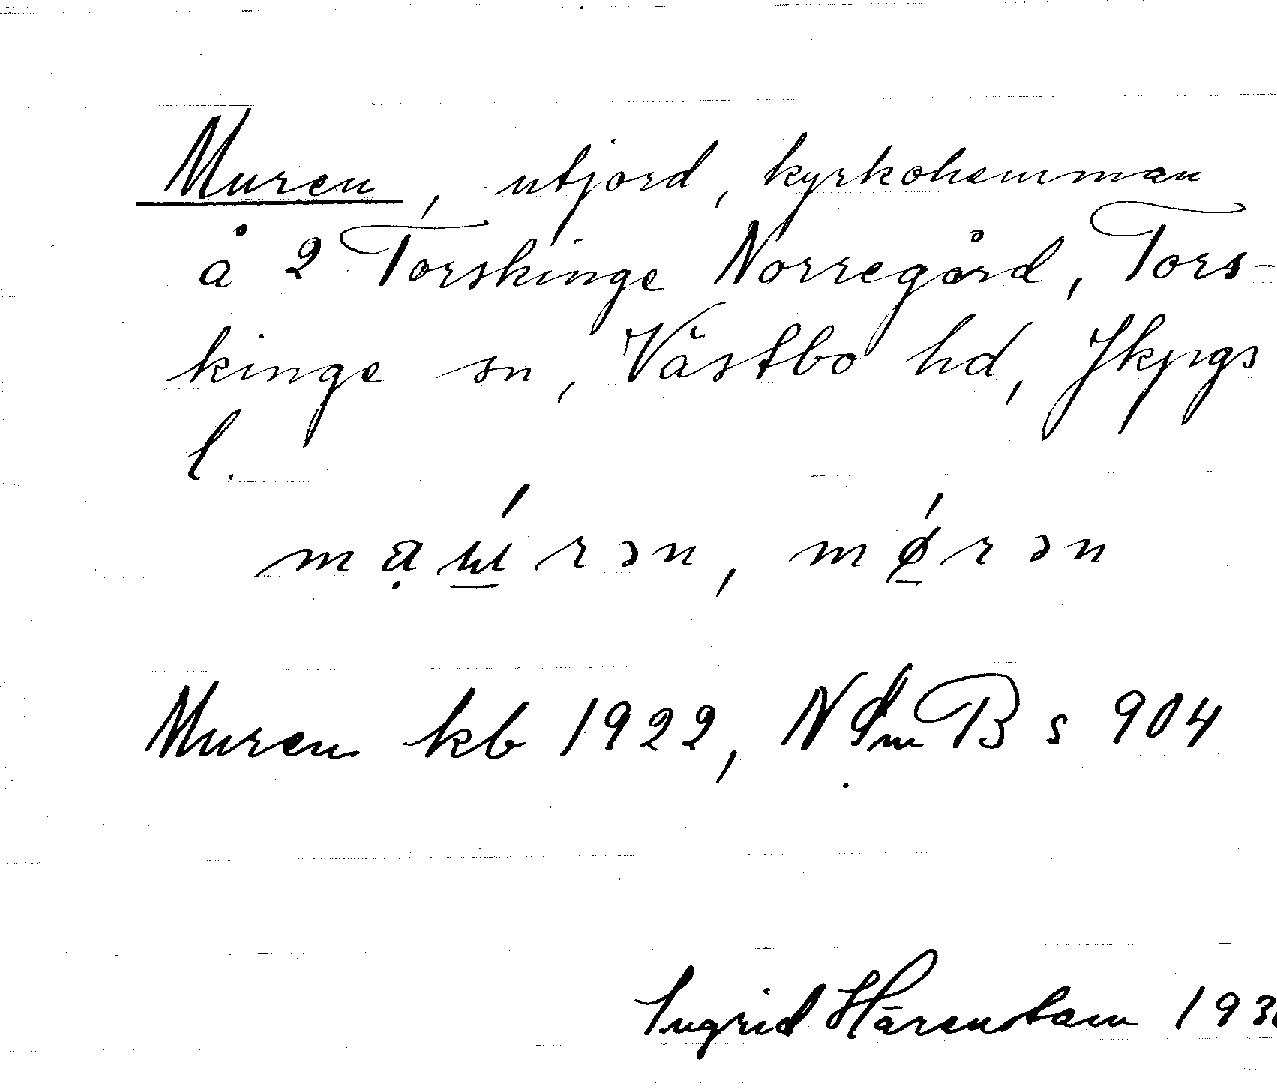 Muren, utjord, kyrkohemman
å 2 Torskinge Norregård, Tors-
kinge sn, Västbo hd, Jkpgs
l.
rən, rən
Muren kb 1922, B s 904
Ingrid Härenstam